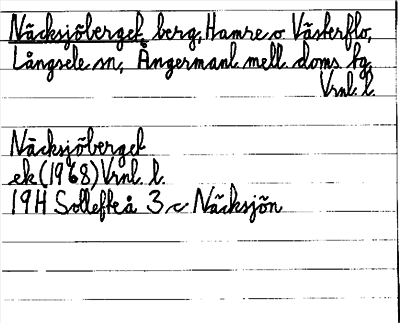 Näcksjöberget berg, Hamre o Västerflo,
Långsele sn, Ångermanl mell doms tg
Vrnl. l
Näcksjöberget
ek (1968) Vrnl. l.
19H Sollefteå 3 c Näcksjön